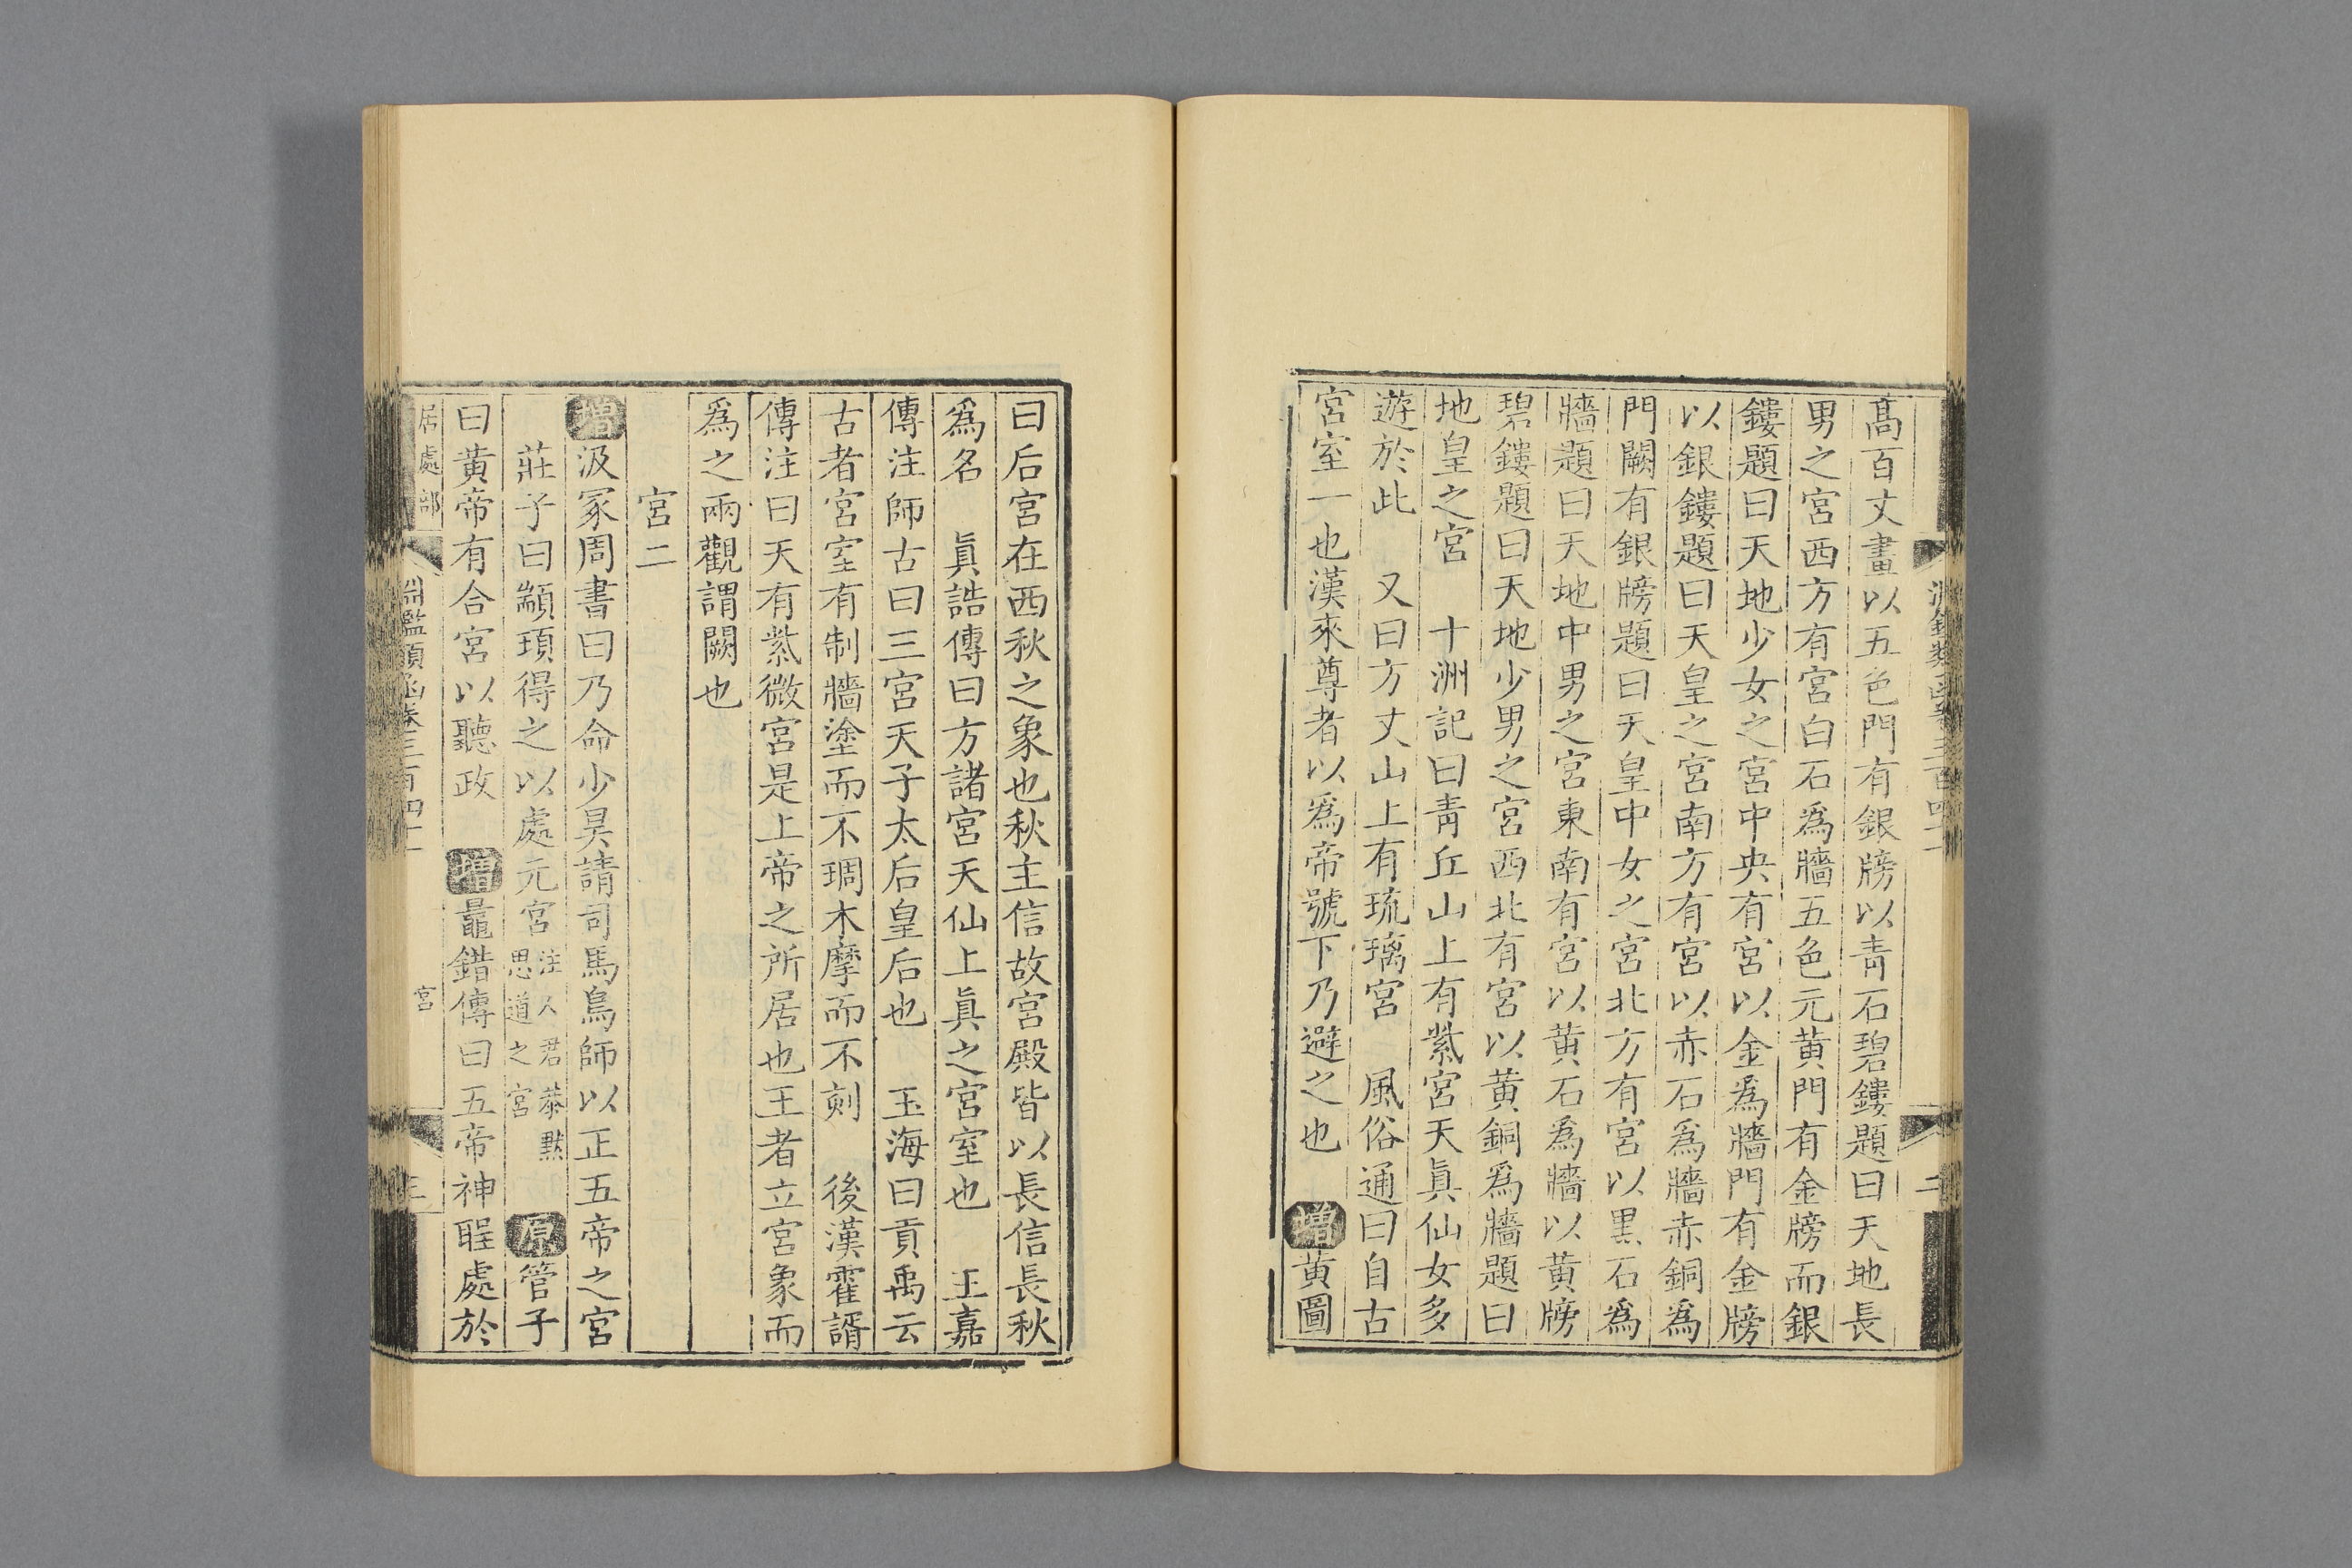 高百丈畫以五色門有銀牓以青石碧鏤題曰天地長
男之宮西方有宮白石爲牆五色元黄門有金牓而銀
鏤題曰天地少女之宮中央有宮以金爲牆門有金牓
以銀鏤題曰天皇之宮南方有宮以赤石爲牆赤銅爲
門闕有銀牓題曰天皇中女之宮北方有宮以黒石爲
牆題曰天地中男之宮東南有宮以黄石爲牆以黄牓
碧鏤題曰天地少男之宮西北有宮以黄銅爲牆題曰
地皇之宮 十洲記曰青丘山上有紫宮天眞仙女多
遊於此 又曰方丈山上有琉璃宮 風俗通曰自古
宮室一也漢來尊者以爲帝號下乃避之也 增黄圖
曰后宮在西秋之象也秋主信故宮殿皆以長信長秋
爲名 眞誥傳曰方諸宮天仙上眞之宮室也 王嘉
傳注師古曰三宮天子太后皇后也 玉海曰貢禹云
古者宮室有制牆塗而不琱木摩而不刻 後漢霍諝
傳注曰天有紫微宮是上帝之所居也王者立宮象而
爲之兩觀謂闕也
宮二
增汲冢周書曰乃命少昊請司馬鳥師以正五帝之宮
莊子曰顓頊得之以處元宮注人君恭黙思道之宮 原管子
曰黄帝有合宮以聽政 增鼂錯傳曰五帝神聖處於
居處部
淵鑑類函卷三百四十一
宮
三